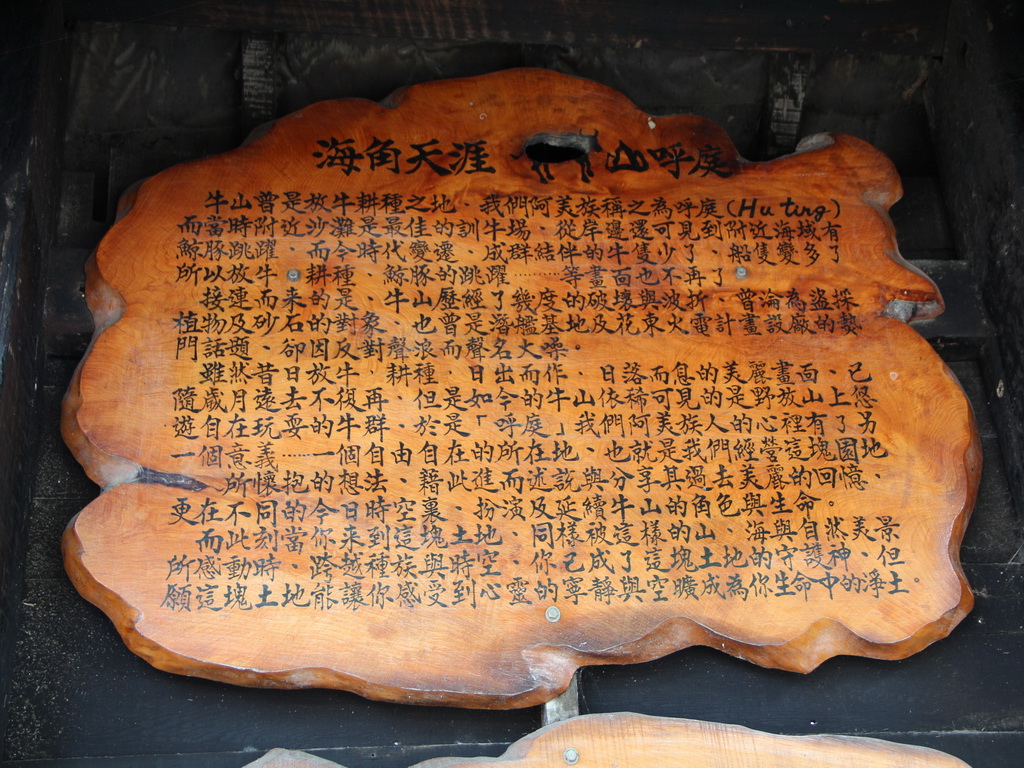 海角天涯 山呼庭
牛山曾是放牛耕種之地、我們阿美族稱之為呼庭(Hu ting)
而當時附近沙灘是最佳的訓牛場、從岸邊還可見到附近海域有
鯨豚跳躍、而今時代變遷、成群結伴的牛隻少了、船隻變多了
所以放牛、耕種、鯨豚的跳躍…………等畫面也不再了
接連而來的是、牛山歷經了幾度的破壞與波折、曾淪為盜採
植物及砂石的對象、也曾是潛艦基地及花東火電計畫設廠的熱
門話題、卻因反對聲浪而聲名大噪。
雖然昔日放牛、耕種、日出而作、日落而息的美麗畫面、已
隨歲月遠去不復再、但是如今牛山依稀可見的是野放山上悠
遊自在玩耍的牛群、於是「呼庭」我們阿美族人的心裡有了另
一個意義……一個自由、自在的所在地、也就是我們經營這塊園地
所懷抱的想法、藉此進而述說與分享其過去美麗的回憶、
更在不同的今日時空裏、扮演及延續牛山的角色與生命。
而此刻當你來到這塊土地、同樣被這樣的山、海與自然美景
所感動時、跨越種族與時空、你已成了這塊土地的守護神、但
願這塊土地能讓你感受到心靈的寧靜與空曠成為你生命中的淨土。